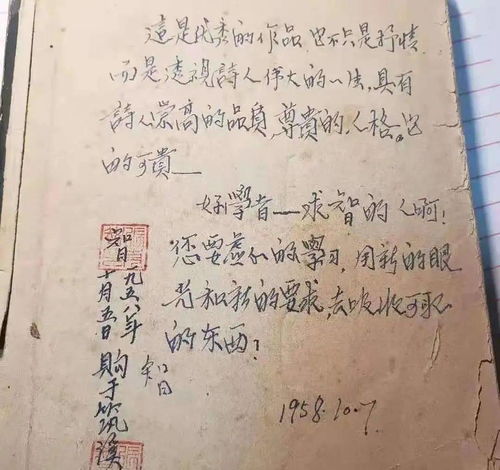 這是优秀的作品,它不只是抒情
而是透視詩人伟大的一生,具有
詩人崇高的品質,尊貴的人格。它
的可貴——
好學者——求智的人啊!
您要虚心的學习,用新的眼
光和新的要求,去吸收可取
的东西!
1958.10.7.
一九五八年
十月五日购于筑溪